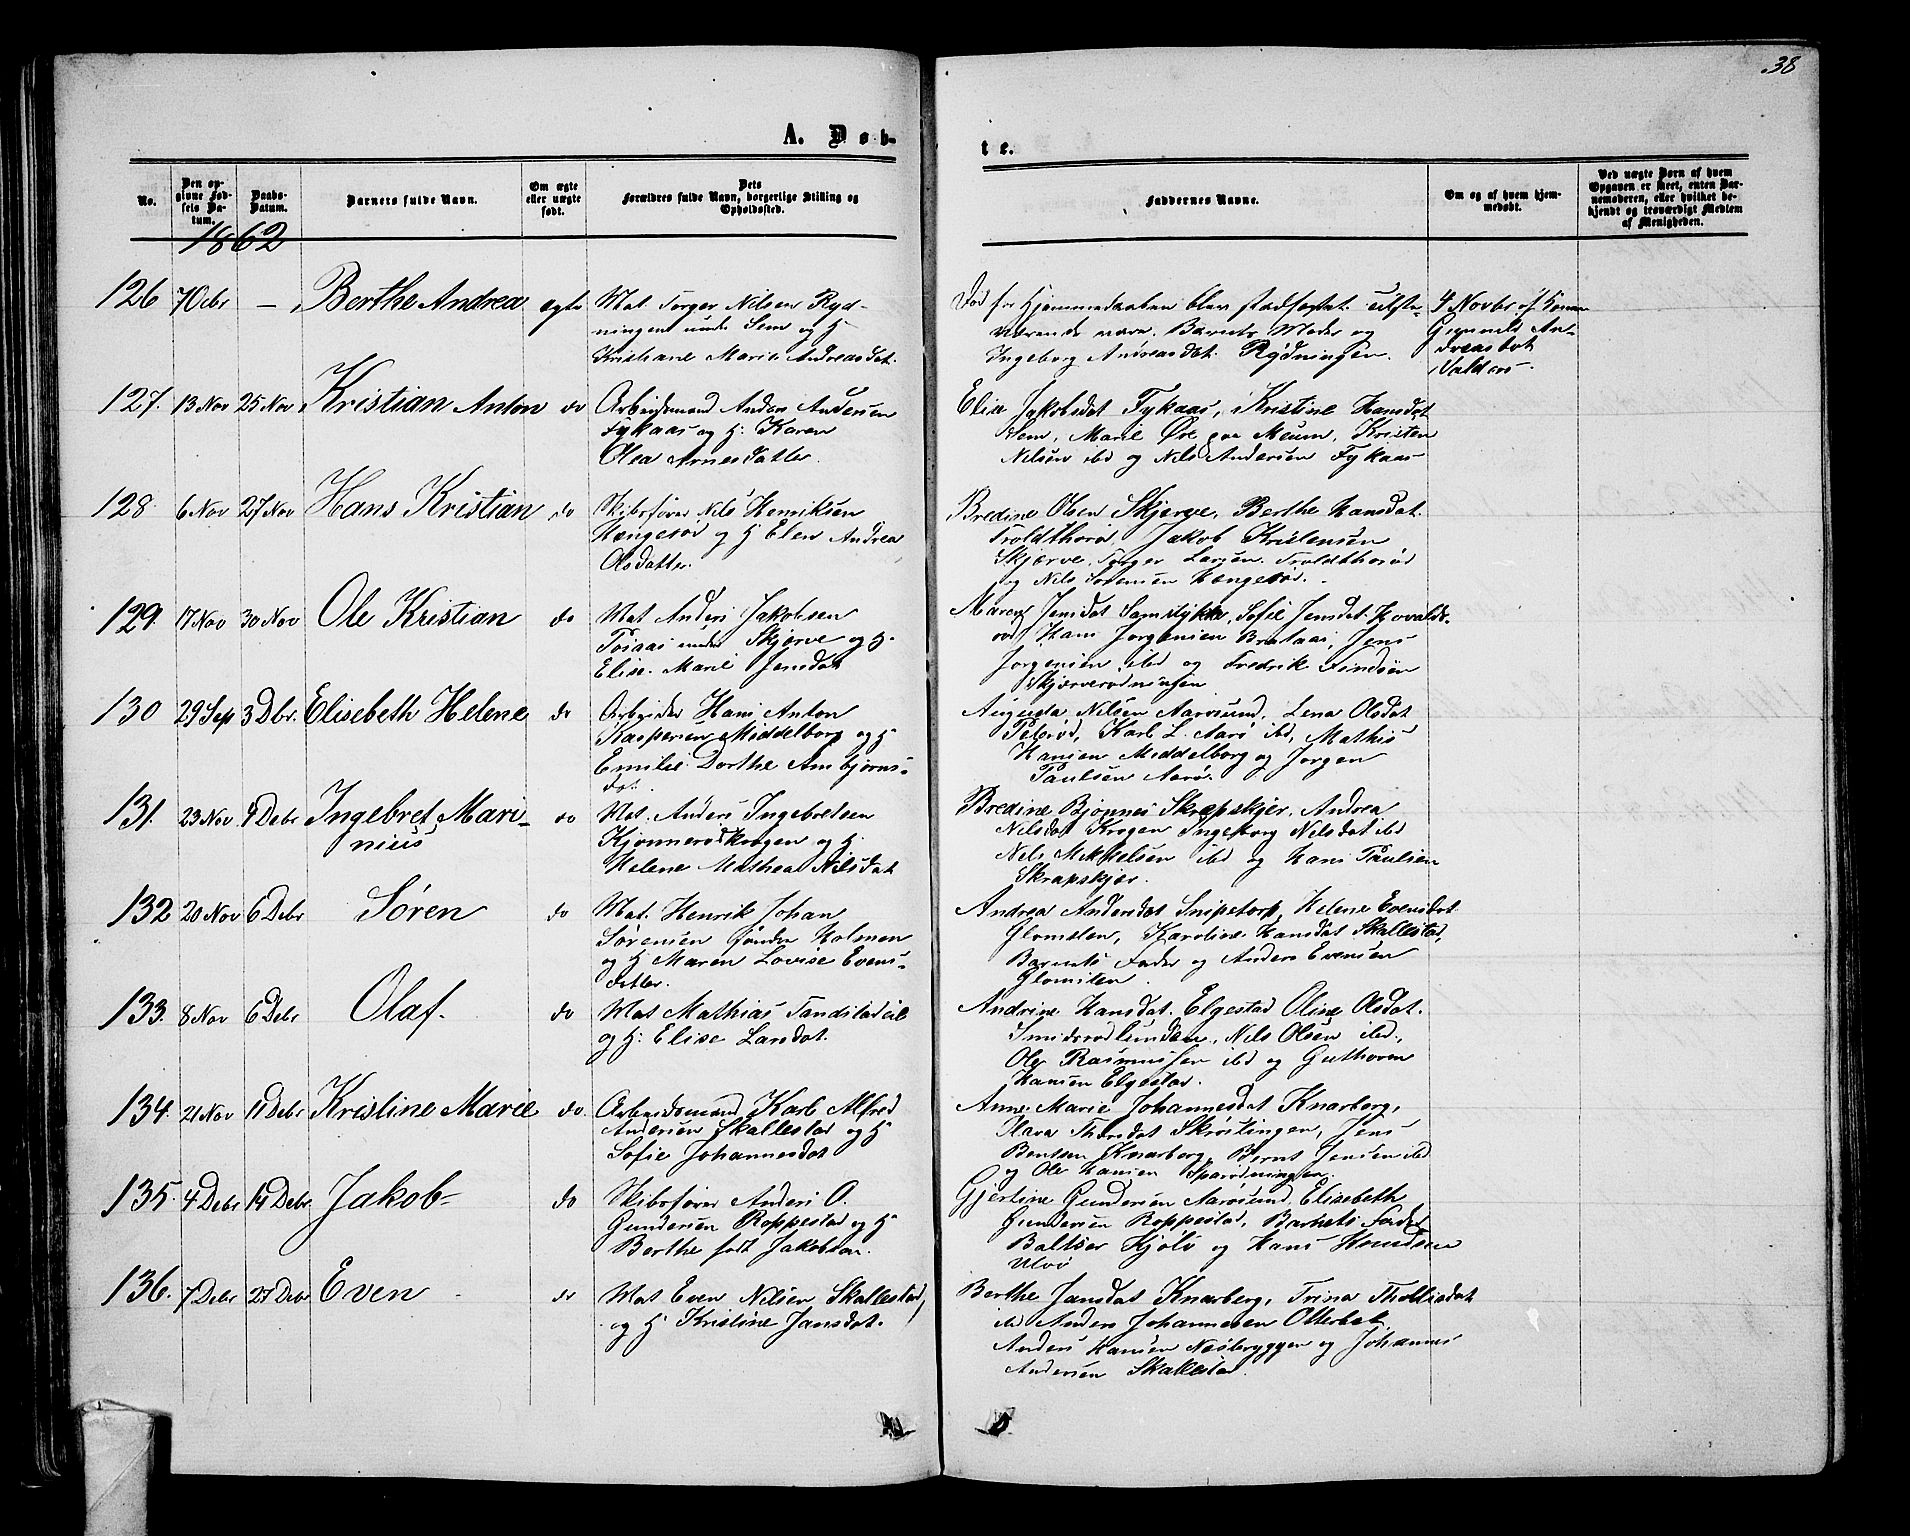 38
A. Døb-
te.
No.
Den op-
givne Fød-
sels Da-
tum.
Daabs-
Datum.
Barnets fulde Navn.
Om ægte
eller uægte
født.
Dets
Forældres fulde Navn, borgerlige Stilling og
Opholdssted.
Faddernes Navne.
Om og af hvem hjem-
medøbt.
Ved uægte Børn af hvem
Opgaven er skeet, enten Bar-
nemoderen, eller hvilket be-
kjendt og troværdigt Medlem
af Menigheden.
1862
126 7 Ocbr — Berthe Andrea ægte Mat. Torger Nilsen Ryd-
ningen under Sem og H
Kristiane Marie Andreasdat.
Død før Hjemmedaaben blev stadfæstet. Tilste-
værende vare. Barnets Moder og
Ingeborg Andreasdat. Rødningen.
4 Novbr af
Gunnild An-
dreasdat
Valders.
127. 13 Nov 25 Nov Kristian Anton do Arbeidsmand Anders Andersen
Fykaas og H. Karen
Olea Arnesdatter.
Elise Jakobsdat Fykaas, Kristine Hansdat
Sem, Marie Øre Meum, Kristen
Nilsen ibd og Nils Andersen Fykaas
128. 6 Nov 27 Nov Hans Kristian do Skibsfører Nils Henriksen
Hængesør og H Elen Andrea
Olsdatter.
Bredine Olsen Skjerve, Berthe Hansdat.
Troldthorød, Jakob Kristensen
Skjærve, Torger Larsen Troldthorød
og Nils Sorensen Hængesør.
129. 17 Nov 30 Nov Ole Kristian do Mat Anders Jakobsen
Toraas under Skjørve og H.
Elise Marie Jensdat
Maren Jensdat Samstykke, Sofie Jensdat Hovalds-
rød, Hans Jorgensen Brataas, Jens
Jorgensen ibd og Fredrik Findsen
Skjærverødningen
130 29 Sep 3 Dbr. Elisebeth Helene do Arbeider Hans Anton
Kaspersen Middelborg og H
Emilie Dorthe Ambjørns-
dat.
Augusta Nilsen Aarøsund, Lena Olsdat
Peterød, Karl L. Aarø ibd, Mathis
Hansen Middelborg og Jorgen
Paulsen Aarø.
131. 23 Nov 4 Debr Ingebret Mari-
nius do Mat. Anders Ingebretsen
Kjonnerødkrogen og H.
Helene Mathea Nilsdat
Bredine Bjønnes Skrapskjer, Andrea
Nilsdat Krogen Ingeborg Nilsdat ibd
Nils Mikkelsen ibd og Hans Paulsen
Skrapskjer.
132 20 Nov 6 Debr Søren do Mat. Henrik Johan
Sørensen søndre Holmen
og H Maren Lovise Evens-
datter.
Andrea Andersdat Snipetorp, Helene Evensdat
Glomsten, Karoline Hansdat Skallestad,
Barnets Fader og Anders Evensen
Glomsten
133. 8 Nov 6 Debr Olaf. do Mat Mathias Tandstadeie
og H: Elise Larsdat.
Andrine Hansdat. Elgestad Oline Olsdat.
Smidsrødlunden, Nils Olsen ibd.,
Ole Rasmussen ibd og Guthorm
Hansen Elgestad.
134. 21 Nov 11 Debr Kristine Marie do. Arbeidsmand Karl Alfred
Andersen Skallestad og H
Sofie Johannesdat
Anne Marie Johannesdat Knarberg,
Hava Thorsdat Skrøslingen, Jens
Bentsen Knarberg, Bernt Jensen ibd
og Ole Hansen Sparødningen
135. 4 Debr 14 Debr Jakob do Skibsfører Anders O.
Gundersen Roppestad og H
Berthe født Jakobsen.
Gjertine Gundersen Aarøsund, Elisebeth
Gundersen Roppestad, Barnets Fader
Baltser Kjølø og Hans Knudsen
Ulvø
136. 7 Debr 27 Debr Even do Mat Even Nilsen Skallestad,
og H Kristine Jansdat.
Berthe Jansdat Knarberg, Trina
ibd Anders Johannesen Otterbek
Anders Hansen Nesbryggen og Johannes
Andersen Skallestad